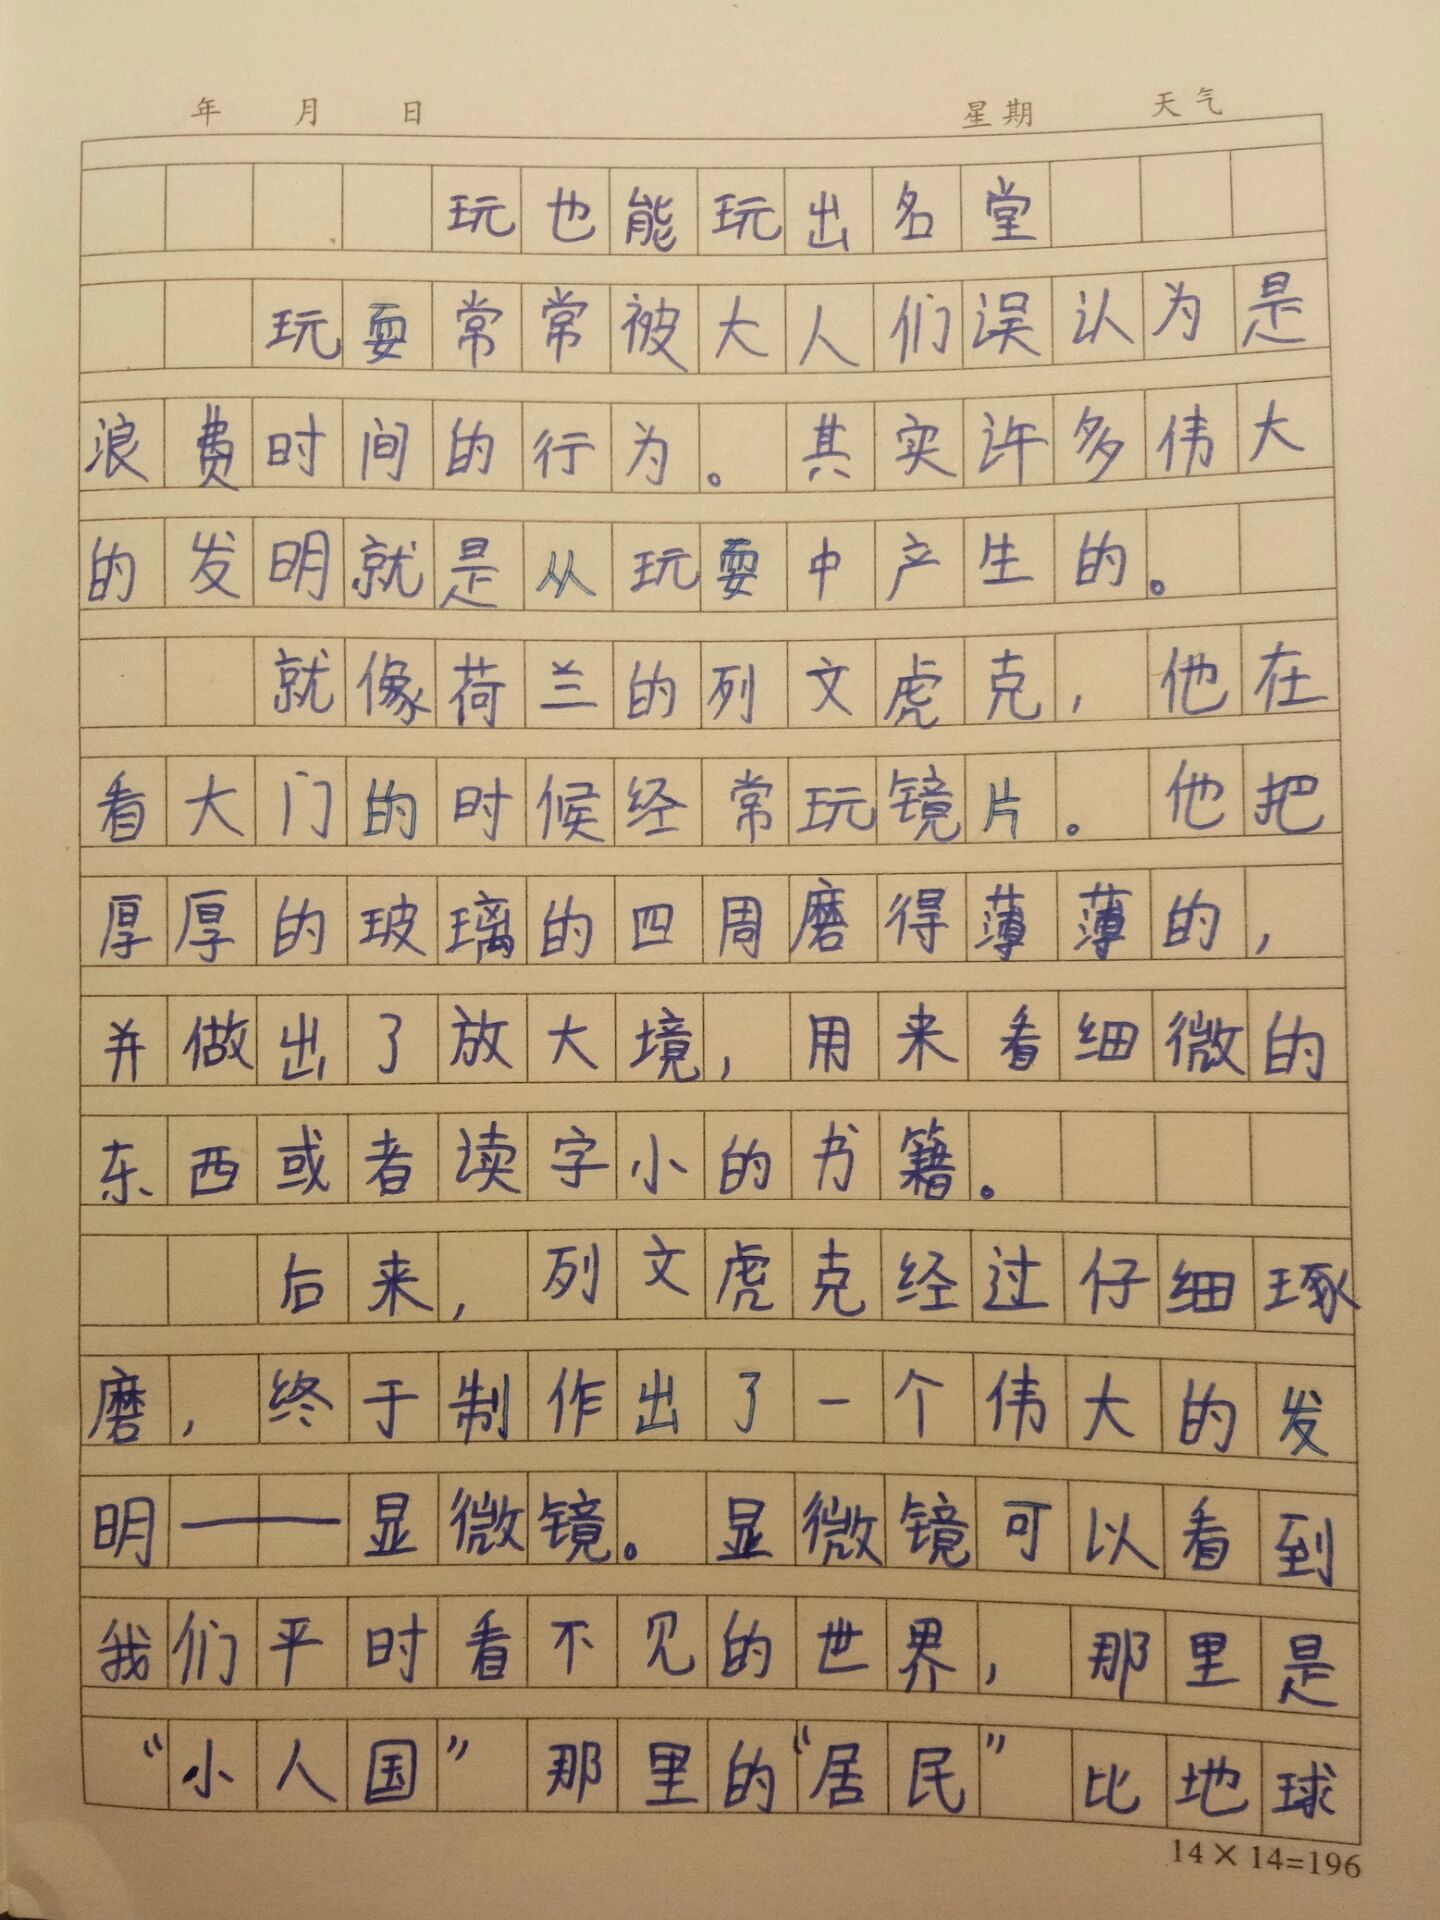 年 月 日 星期 天气
玩也能玩出名堂
玩耍常常被大人们误认为是
浪费时间的行为。其实许多伟大
的发明就是从玩耍中产生的。
就像荷兰的列文虎克，他在
看大门的时候经常玩镜片。他把
厚厚的玻璃的四周磨得薄薄的，
并做出了放大境，用来看细微的
东西或者读字小的书籍。
后来，列文虎克经过仔细琢
磨，终于制作出了一个伟大的发
明——显微镜。显微镜可以看到
我们平时看不见的世界，那里是
“小人国”那里的“居民”比地球
14×14=196